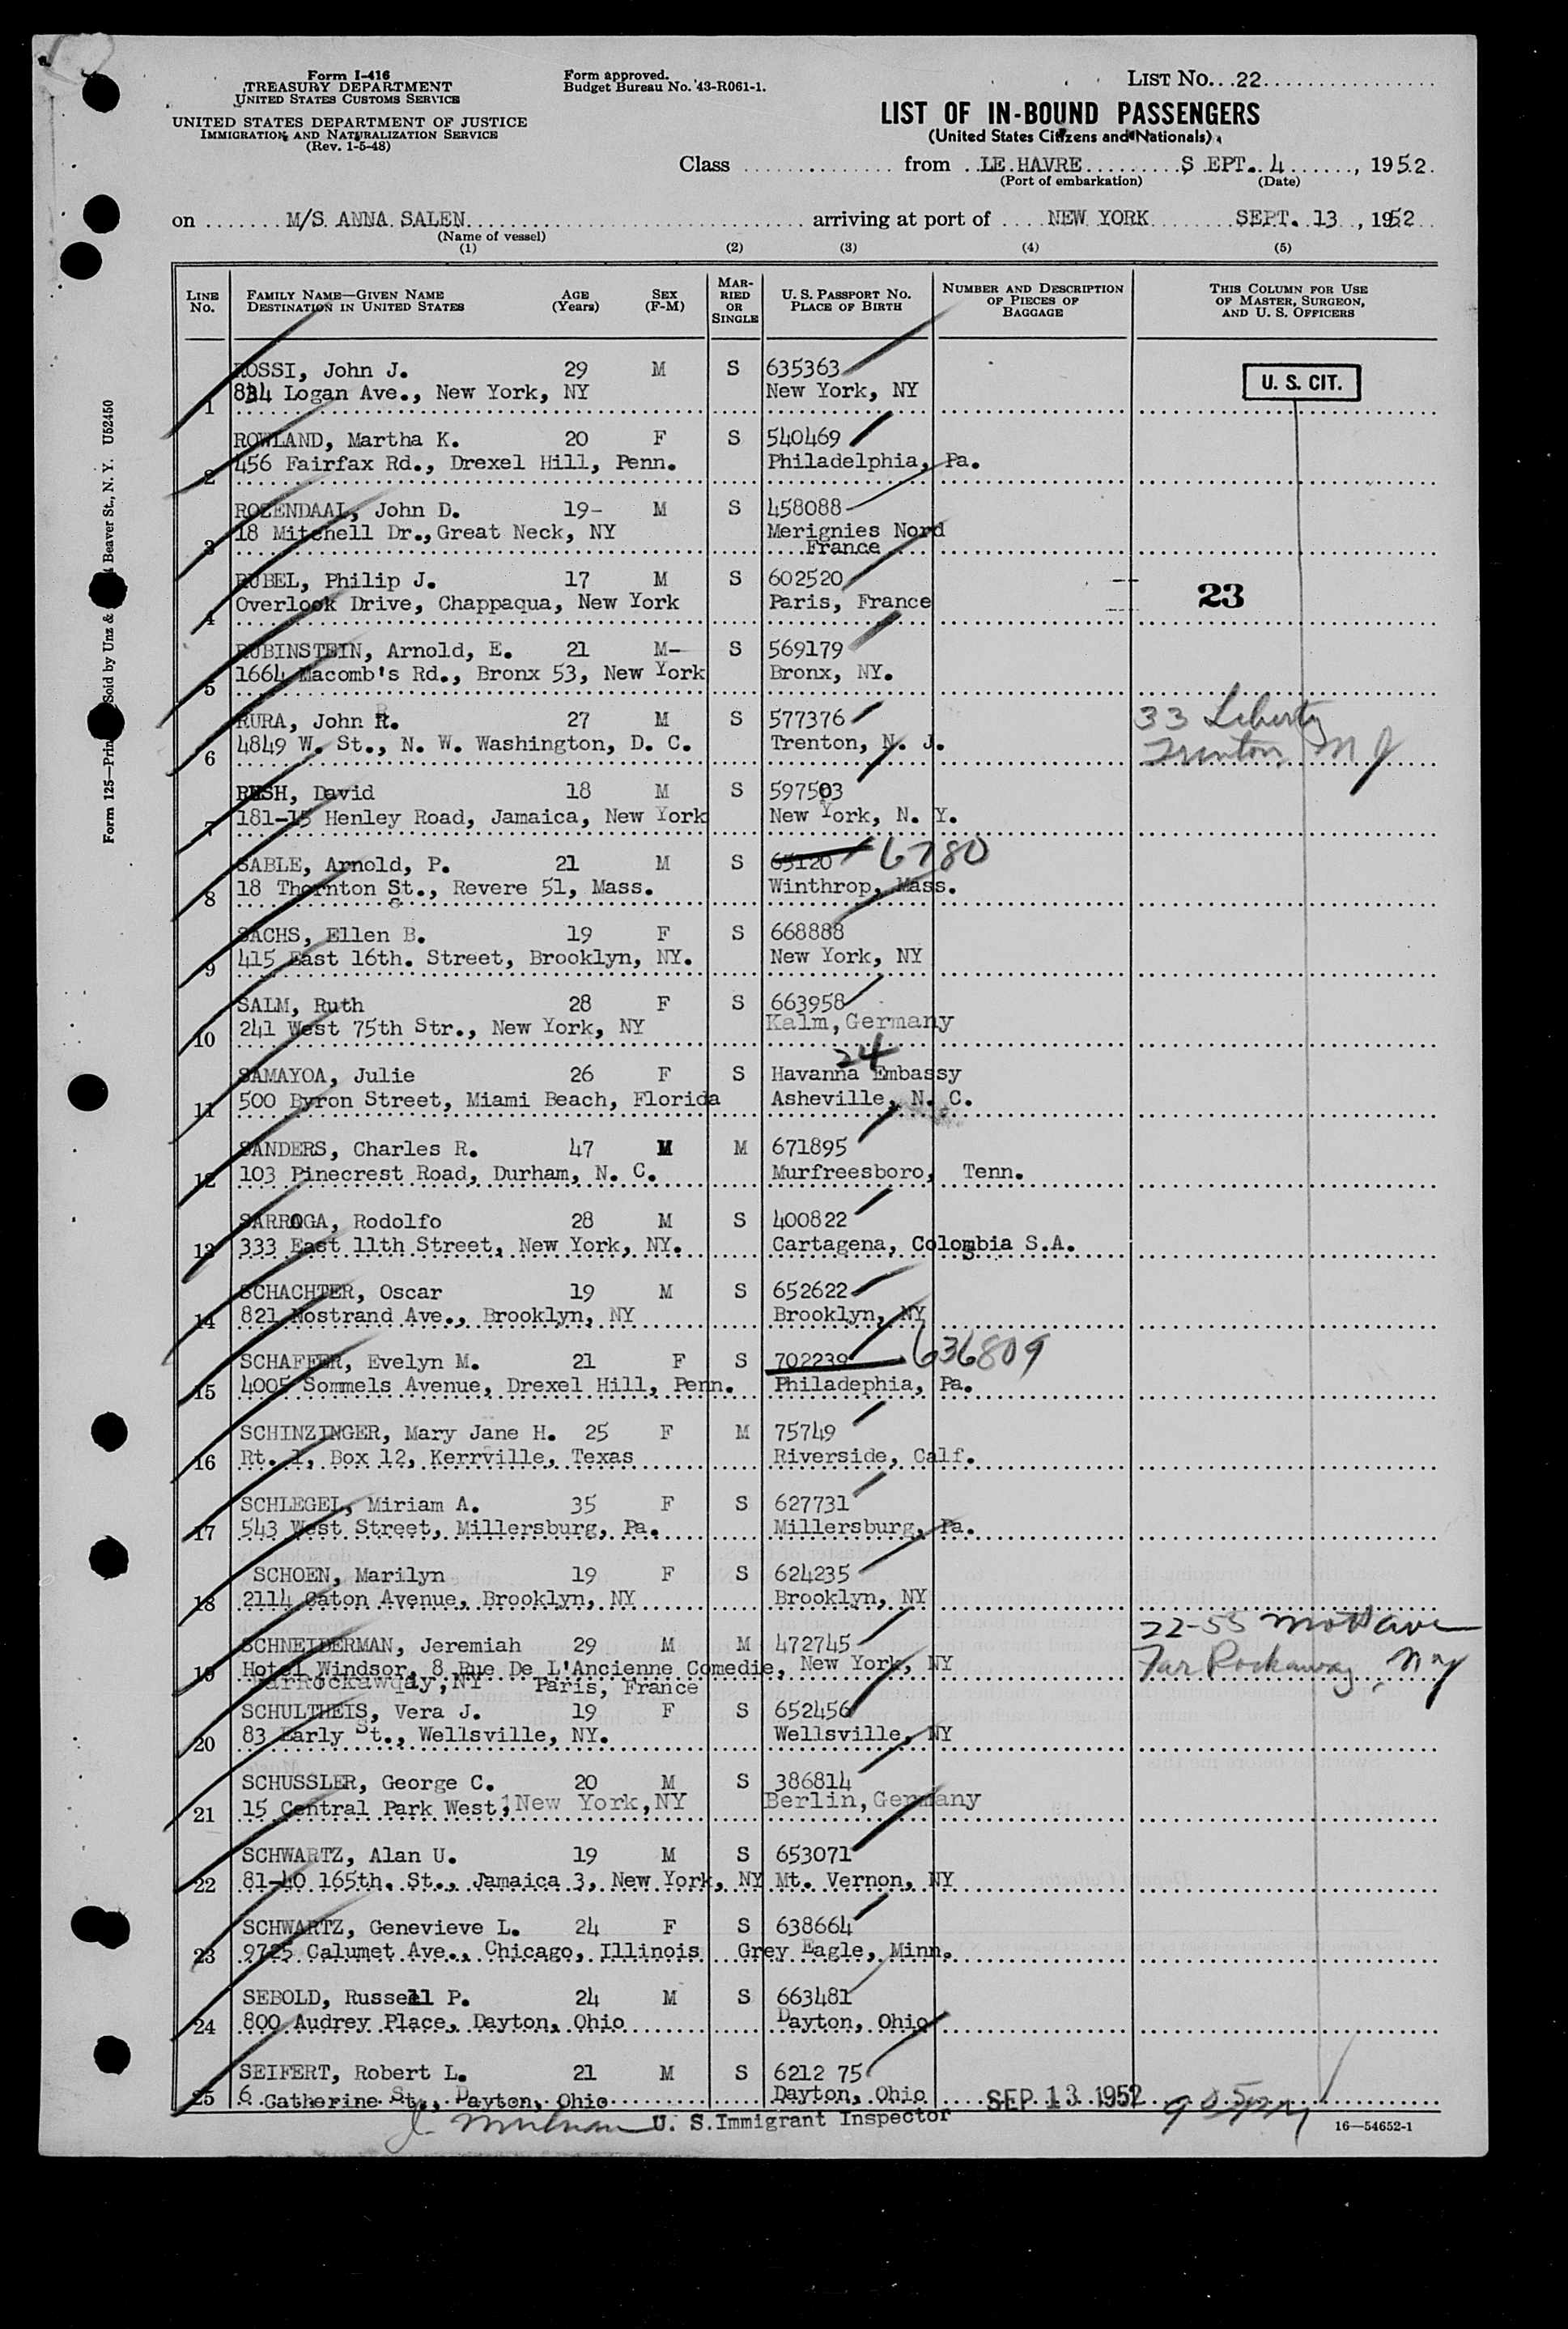 Form I-416
TREASURY DEPARTMENT
UNITED STATES CUSTOMS SERVICE
UNITED STATES DEPARTMENT OF JUSTICE
IMMIGRATION AND NATURALIZATION SERVICE
(Rev. 1-5-48)
Form approved.
Budget Bureau No. 43-R061-1.
LIST No. 22
LIST OF IN-BOUND PASSENGERS
(United States Citizens and Nationals)
Class from LE HAVRE SEPT. 4, 1952
(Port of embarkation) (Date)
on M/S ANNA SALEN arriving at port of NEW YORK SEPT. 13, 1952
(Name of vessel)
(1) (2) (3) (4) (5)
LINE No. FAMILY NAME—GIVEN NAME DESTINATION IN UNITED STATES AGE (Years) SEX (F-M) MARRIED OR SINGLE U. S. PASSPORT NO. PLACE OF BIRTH NUMBER AND DESCRIPTION OF PIECES OF BAGGAGE THIS COLUMN FOR USE OF MASTER, SURGEON, AND U. S. OFFICERS
U. S. CIT.
ROSSI, John J. 29 M S 635363
1 834 Logan Ave., New York, NY New York, NY
ROWLAND, Martha K. 20 F S 540469
2 456 Fairfax Rd., Drexel Hill, Penn. Philadelphia, Pa.
ROZENDAAL, John D. 19- M S 458088
18 Mitchell Dr., Great Neck, NY Merignies Nord
3 France
RUBEL, Philip J. 17 M S 602520
4 Overlook Drive, Chappaqua, New York Paris, France 23
RUBINSTEIN, Arnold, E. 21 M- S 569179
5 1664 Macomb's Rd., Bronx 53, New York Bronx, NY.
RURA, John R. 27 M S 577376 33 Liberty
6 4849 W. St., N. W. Washington, D. C. Trenton, N. J. Trenton, N J
RUSH, David 18 M S 597503
7 181-15 Henley Road, Jamaica, New York New York, N. Y.
SABLE, Arnold, P. 21 M S 65120 6780
8 18 Thornton St., Revere 51, Mass. Winthrop, Mass.
SACHS, Ellen B. 19 F S 668888
9 415 East 16th. Street, Brooklyn, NY. New York, NY
SALM, Ruth 28 F S 663958
10 241 West 75th Str., New York, NY Kalm, Germany
24
SAMAYOA, Julie 26 F S Havanna Embassy
11 500 Byron Street, Miami Beach, Florida Asheville, N. C.
SANDERS, Charles R. 47 M M 671895
12 103 Pinecrest Road, Durham, N. C. Murfreesboro, Tenn.
SARROGA, Rodolfo 28 M S 400822
13 333 East 11th Street, New York, NY. Cartagena, Colombia S.A.
SCHACHTER, Oscar 19 M S 652622
14 821 Nostrand Ave., Brooklyn, NY Brooklyn, NY
SCHAFFER, Evelyn M. 21 F S 702239 636809
15 4005 Sommels Avenue, Drexel Hill, Penn. Philadephia, Pa.
SCHINZINGER, Mary Jane H. 25 F M 75749
16 Rt. 1, Box 12, Kerrville, Texas Riverside, Calf.
SCHLEGEL, Miriam A. 35 F S 627731
17 543 West Street, Millersburg, Pa. Millersburg, Pa.
SCHOEN, Marilyn 19 F S 624235
18 2114 Caton Avenue, Brooklyn, NY Brooklyn, NY
SCHNEIDERMAN, Jeremiah 29 M M 472745 22-55 Mott ave
19 Hotel Windsor, 8 Rue De L'Ancienne Comedie, New York, NY Far Rockaway, NY
Far Rockaway, NY Paris, France
SCHULTHEIS, Vera J. 19 F S 652456
20 83 Early St., Wellsville, NY. Wellsville, NY
SCHUSSLER, George C. 20 M S 386814
21 15 Central Park West, New York, NY Berlin, Germany
SCHWARTZ, Alan U. 19 M S 653071
22 81-40 165th. St., Jamaica 3, New York, NY Mt. Vernon, NY
SCHWARTZ, Genevieve L. 24 F S 638664
23 9725 Calumet Ave., Chicago, Illinois Grey Eagle, Minn.
SEBOLD, Russell P. 24 M S 663481
24 800 Audrey Place, Dayton, Ohio Dayton, Ohio
SEIFERT, Robert L. 21 M S 6212 75
25 6 Catherine St., Dayton, Ohio Dayton, Ohio SEP 13 1952
U. S. Immigrant Inspector
16—54652-1
Form 125—Prin Sold by Unz & Beaver St., N. Y. U52450